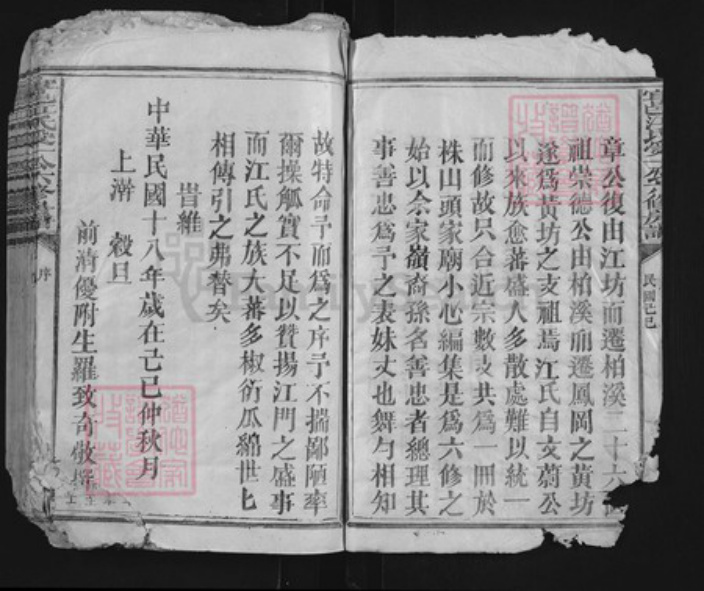 章公復由江坊而遷柏溪二十六
祖崇德公由柏溪而遷鳳岡之黃坊
遂為黃坊之支祖焉江氏自文蔚公
以來族愈蕃盛人多散處難以統一
而修故只合近宗數支共為一冊於
株山頭家廟小心編集是為六修之
始以余家嶺裔孫名善忠者總理其
事善忠為予之表妹丈也舞勺相知
民國己巳
故特命予而為之序予不揣鄙陋率
爾操觚實不足以贊揚江門之盛事
而江氏之族大蕃多椒衍瓜綿世七
相傳引之弗替矣
旹維
中華民國十八年歲在己巳仲秋月
上澣 穀旦
前清優附生羅致奇敬
序